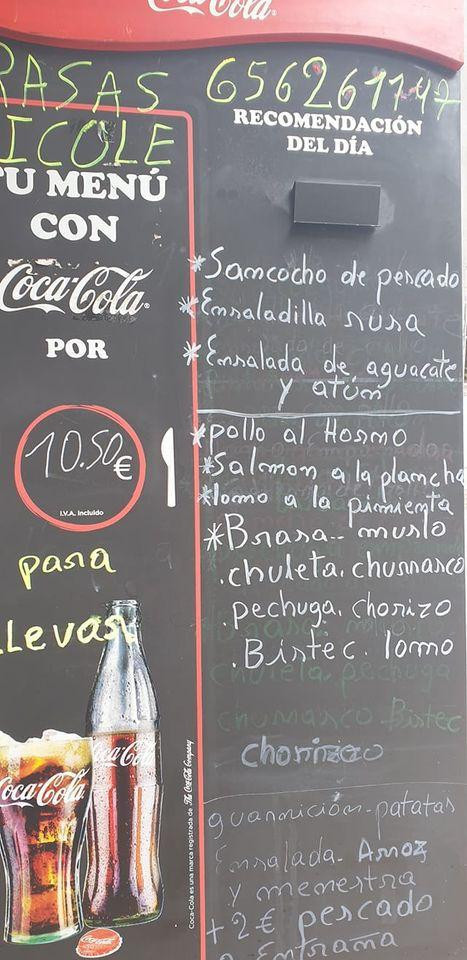 Coca-Cola
RASAS
ICOLE
TU MENÚ
CON
Coca-Cola
POR
10.50€
I.V.A. Incluido
para
LLevar
Coca-Cola
Coca-Cola
Coca-Cola es una marca registrada de The Coca-Cola Company
656261147
RECOMENDACIÓN
DEL DÍA
*Samcocho de pescado
*Ensaladilla rusa
*Ensalada de aguacate
y atún
*pollo al Horno
*Salmon a la plancha
*lomo a la pimienta
*Brasa-- muslo
.chuleta. churrasco
.pechuga. chorizo
.Bistec. lomo
chuleta pechuga
churrasco Bistec
chorizo
guarnición-patatas
Ensalada-Arroz
y menestra
+2€ pescado
o Entraña